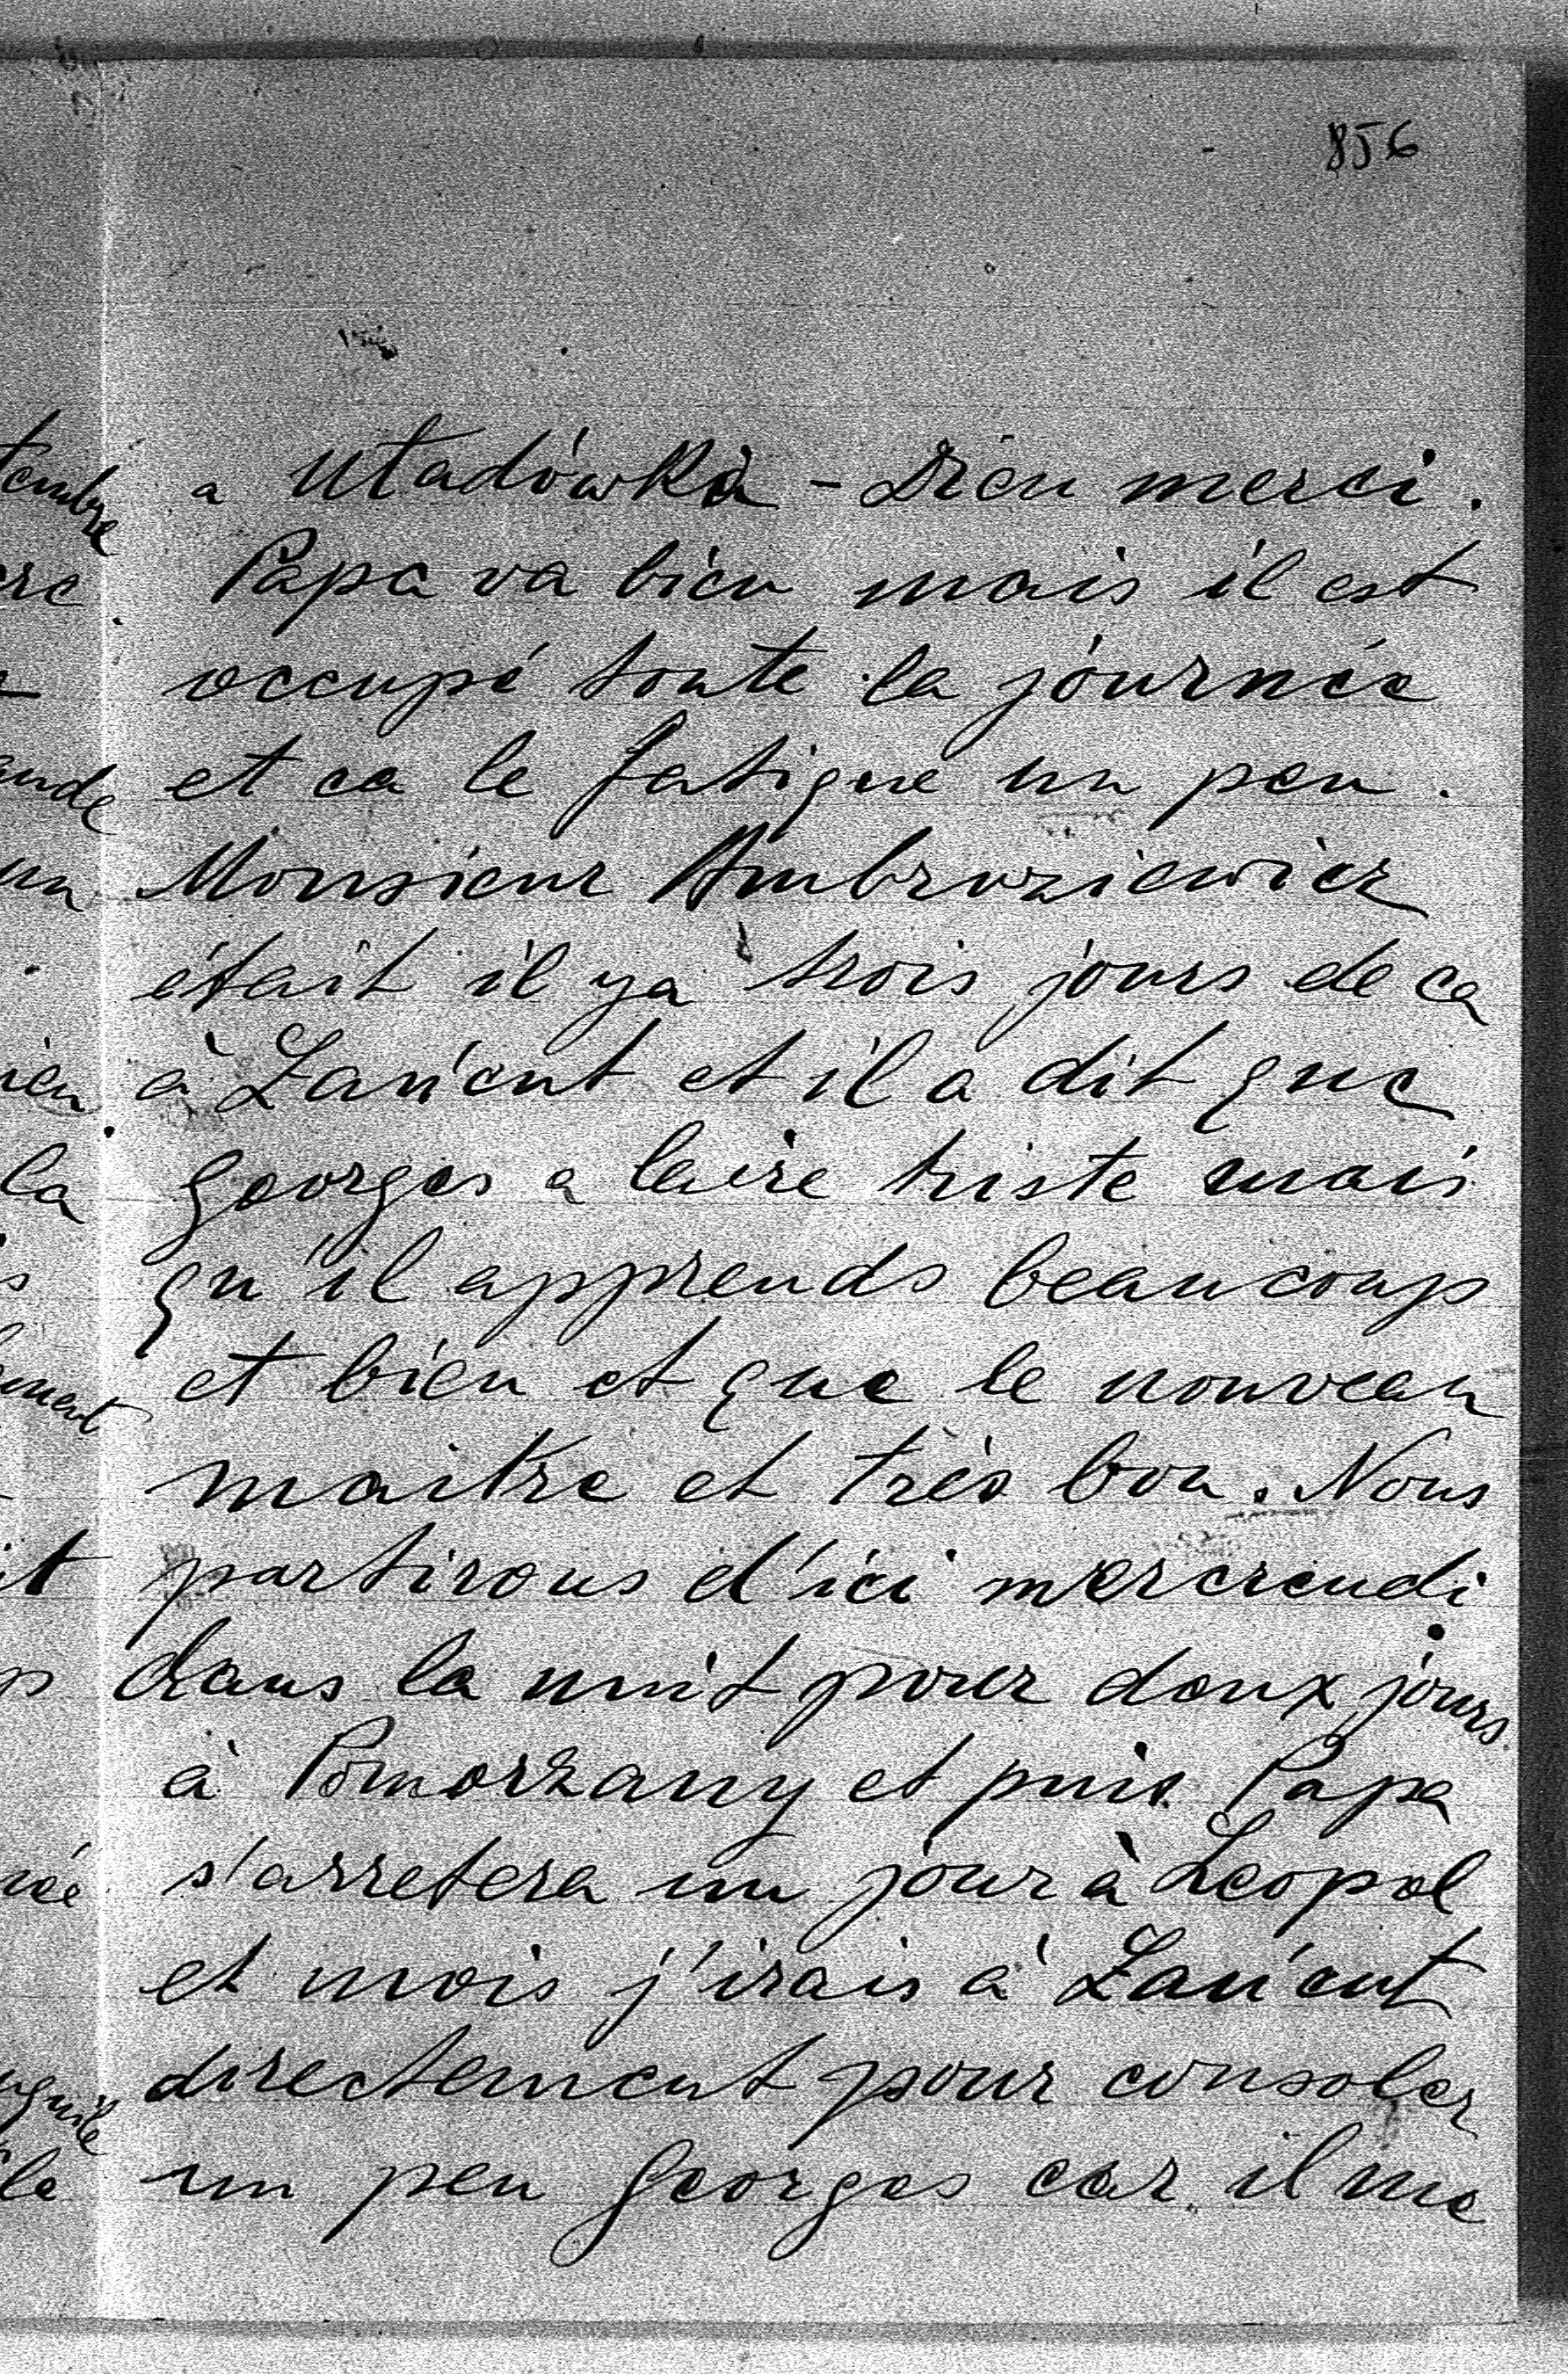 856
a Utadówka - Dieu merci.
Papa va bien mais il est
occupé toute la journée
et ca le fatigue un peu.
Monsieur Ambroziewicz
était il y a trois jours de ca
à Łańcut et il a dit que
Georges a leire triste mais
qu'il apprends beaucoup
et bien et que le nouveau
maitre et très bon. Nous
partirons d'ici mercreudi
dans la nuit pour deux jours.
à Pomorzany et puis Papa
s'arretera un jour à Leopol
et mois j'irais à Łańcut
directement pour consoler
un peu Georges car il me